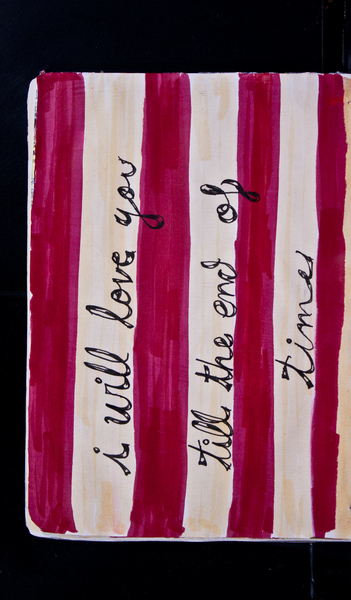 i will love you
till the end of
time